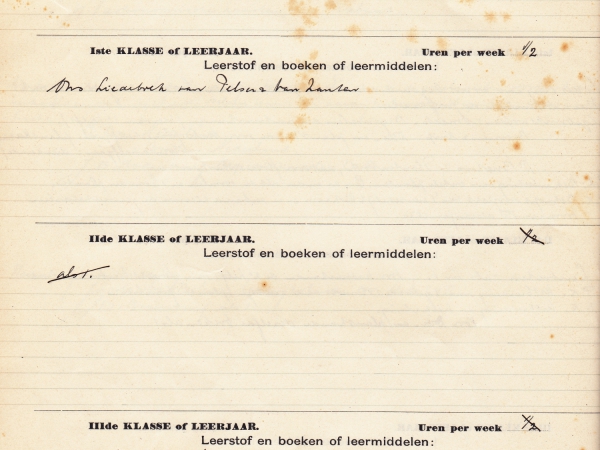 Iste KLASSE of LEERJAAR. Uren per week 1/2
Leerstof en boeken of leermiddelen:
Ons Liederboek van Pelser & Van Zanten
IIde KLASSE of LEERJAAR. Uren per week 1/2
Leerstof en boeken of leermiddelen:
IIIde KLASSE of LEERJAAR. Uren per week 1/2
Leerstof en boeken of leermiddelen: